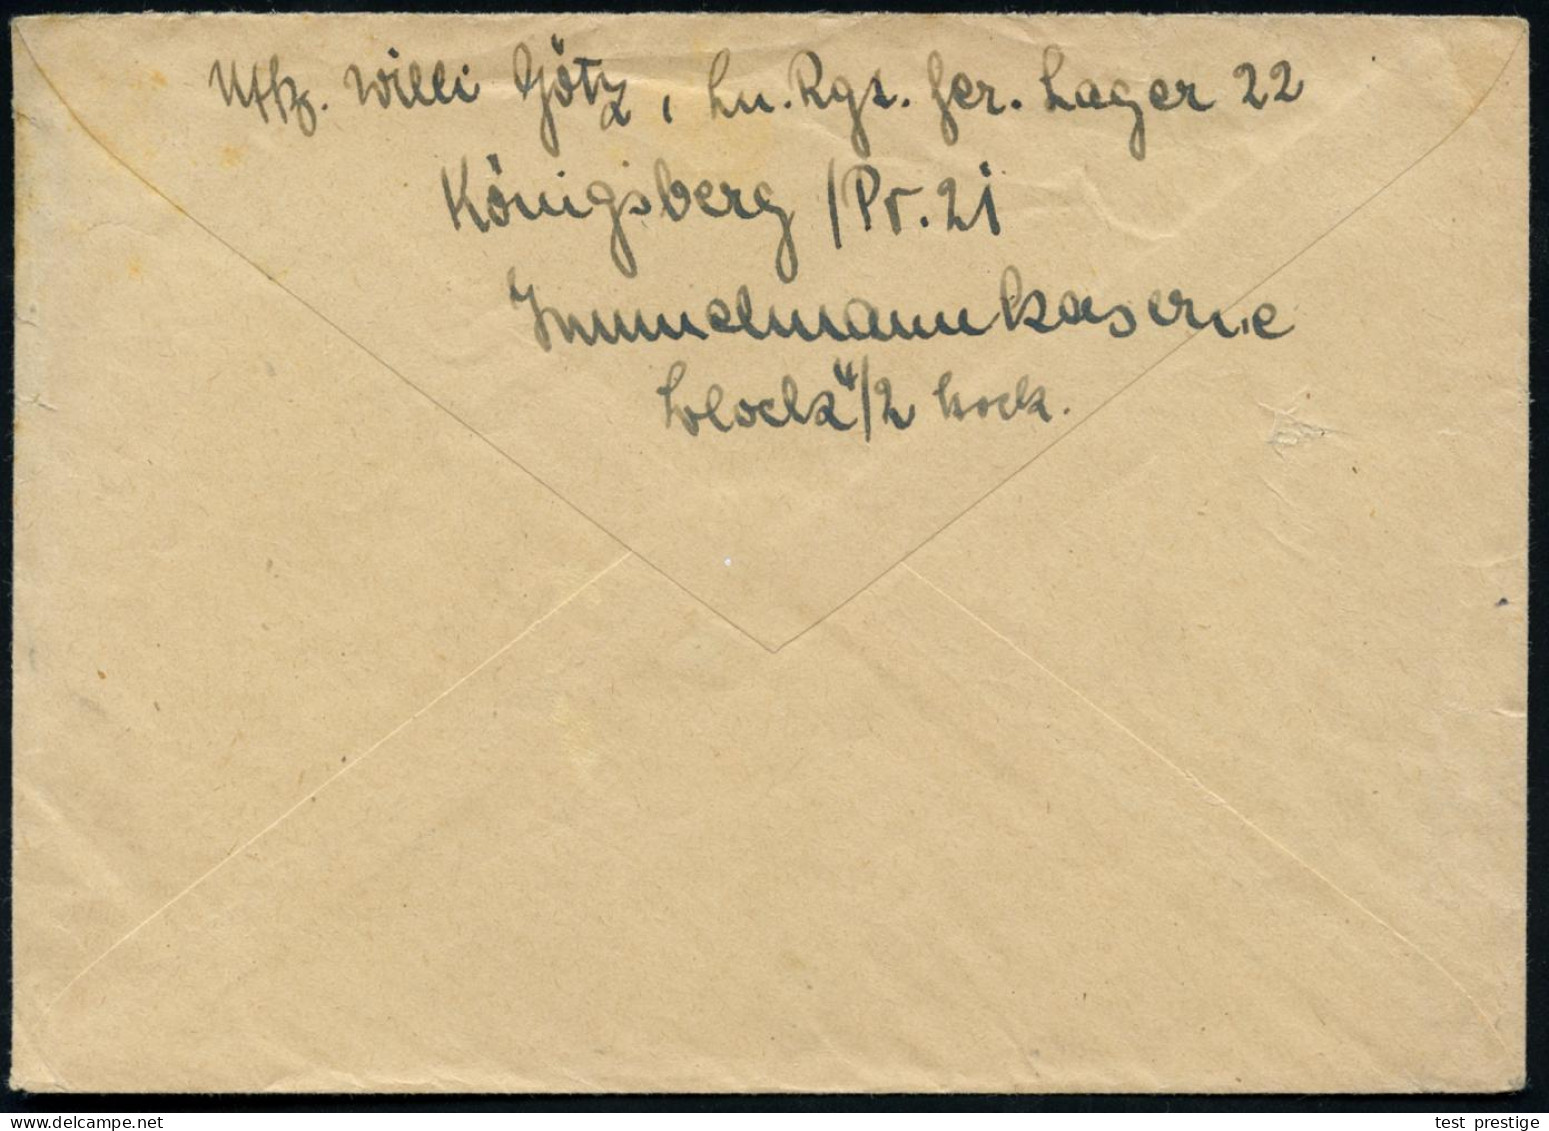 Uffz. Willi Götz, Ln. Rgt. Ger. Lager 22
Königsberg /Pr. 21
Immelmannkaserne
block 4/2 Stock.
test prestige